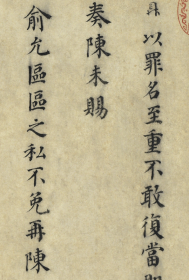 以罪名至重不敢復當
奏陳未賜
俞允區區之私不免再陳